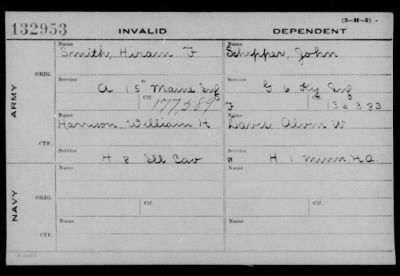 132953
INVALID
DEPENDENT
(3-H-5)
ARMY
ORIG.
Name
Smith, Hiram F
Name
Schipper, John
Service
A 15" Maine Inf
Ctf.
177,589
Service
G 6 Ky Inf
F
136383
CTF.
Name
Harrison, William H.
Name
Davis Alvin W
Service
H 8 Ill Cav
Service
W H 1 Minn H A
NAVY
ORIG.
Name
Name
Service
Ctf.
Service
Ctf.
CTF.
Name
Name
Service
Service